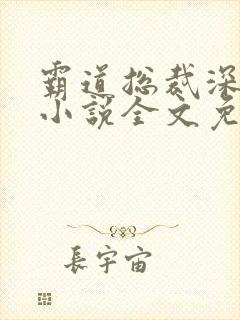 霸道总裁深
小说全文免
長宇宙